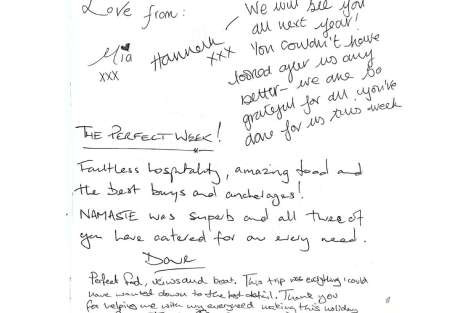 Love from:
Mia
xxx
Hannah
xxx
We will see you
all next year!
You couldn't have
looked after us any
better - we are so
grateful for all you've
done for us this week
THE PERFECT WEEK!
Faultless hospitality, amazing food and
the best bays and anchorages!
NAMASTE was superb and all three of
you have catered for our every need.
Dave
Perfect food, views and boat. This trip was everything i could
have wanted down to the last detail. Thank you
for helping me with my making this holiday